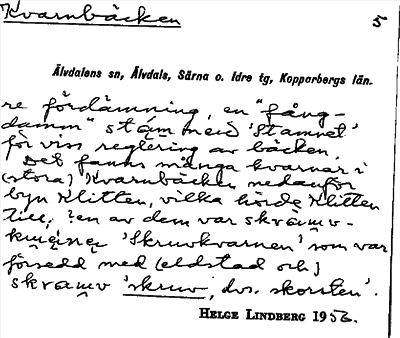 Kvarnbäcken 5
Älvdalens sn, Älvdals, Särna o. Idre tg, Kopparbergs län.
re fördämning, en "fång-
damm" stäm neið 'Stamnet'
för viss reglering av bäcken.
Det fanns många kvarnar i
(stora) Kvarnbäcken nedanför
byn Klitten, vilka hörde Klitten
till; en av dem var skrämv-
'Skruvkvarnen' som var
försedd med (eldstad och)
skrämv 'skruv', dvs. skorsten'.
HELGE LINDBERG 1956.